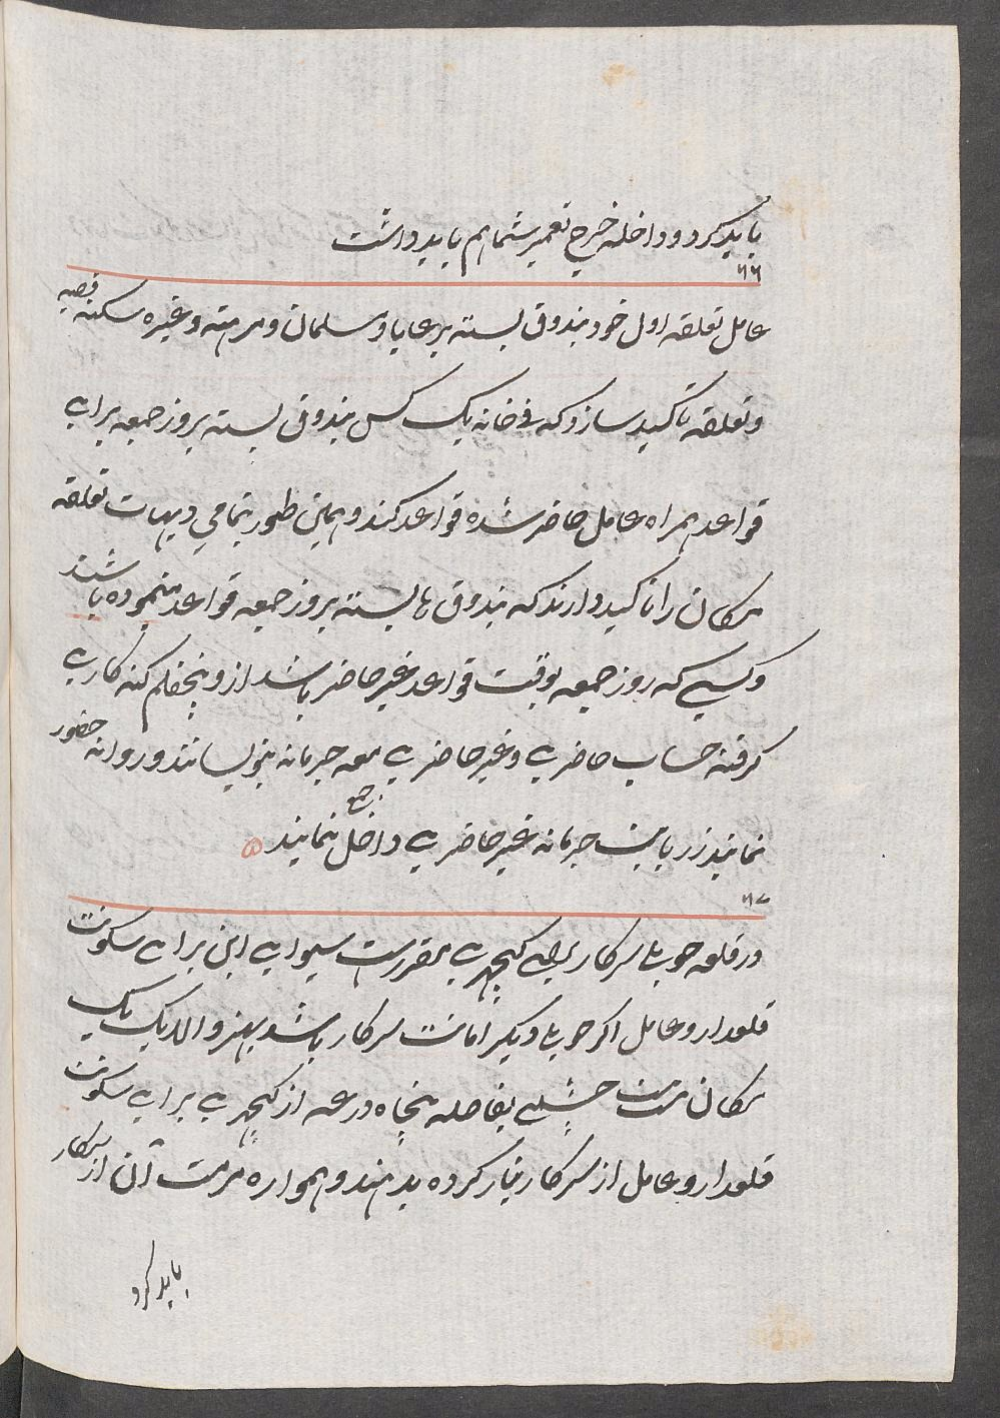 باید کرد و داخله خرچ تعمیر شما هم باید داشت
۶۶
عامل تعلقه اول خود بندوق بسته بر رعایا و مسلمان و مرهته و غیره سکنه قصبه
و تعلقه تاکید سازد که فی خانه یک کس بندوق بسته بروز جمعه برای
قواعد همراه عامل حاضر شده قواعد کند و همین طور تمامی دیهات تعلقه
مکان را تاکید دارند که بندوق ها بسته بروز جمعه قواعد مینموده باشند
و کسی که روز جمعه بوقت قواعد غیر حاضر باشد ازو پنج فلم کنه کاری
گرفته حساب حاضری و غیر حاضری معه جرمانه بنویسانند و روانه حضور
نمایند زر بابت جرمانه غیر حاضری داخل جمع نمایند
۶۷
در قلعه حویلی سرکار برای کچهری مقررست سوای این برای سکونت
قلعدار و عامل اگر حویلی دیگر امانت سرکار باشد بهتر والا یک یک
مکان بفاصله پنجاه درعه از کچهری برای سکونت
قلعدار و عامل از سرکار تیار کرده بدهند و همواره مرمت آن از سرکار
باید کرد